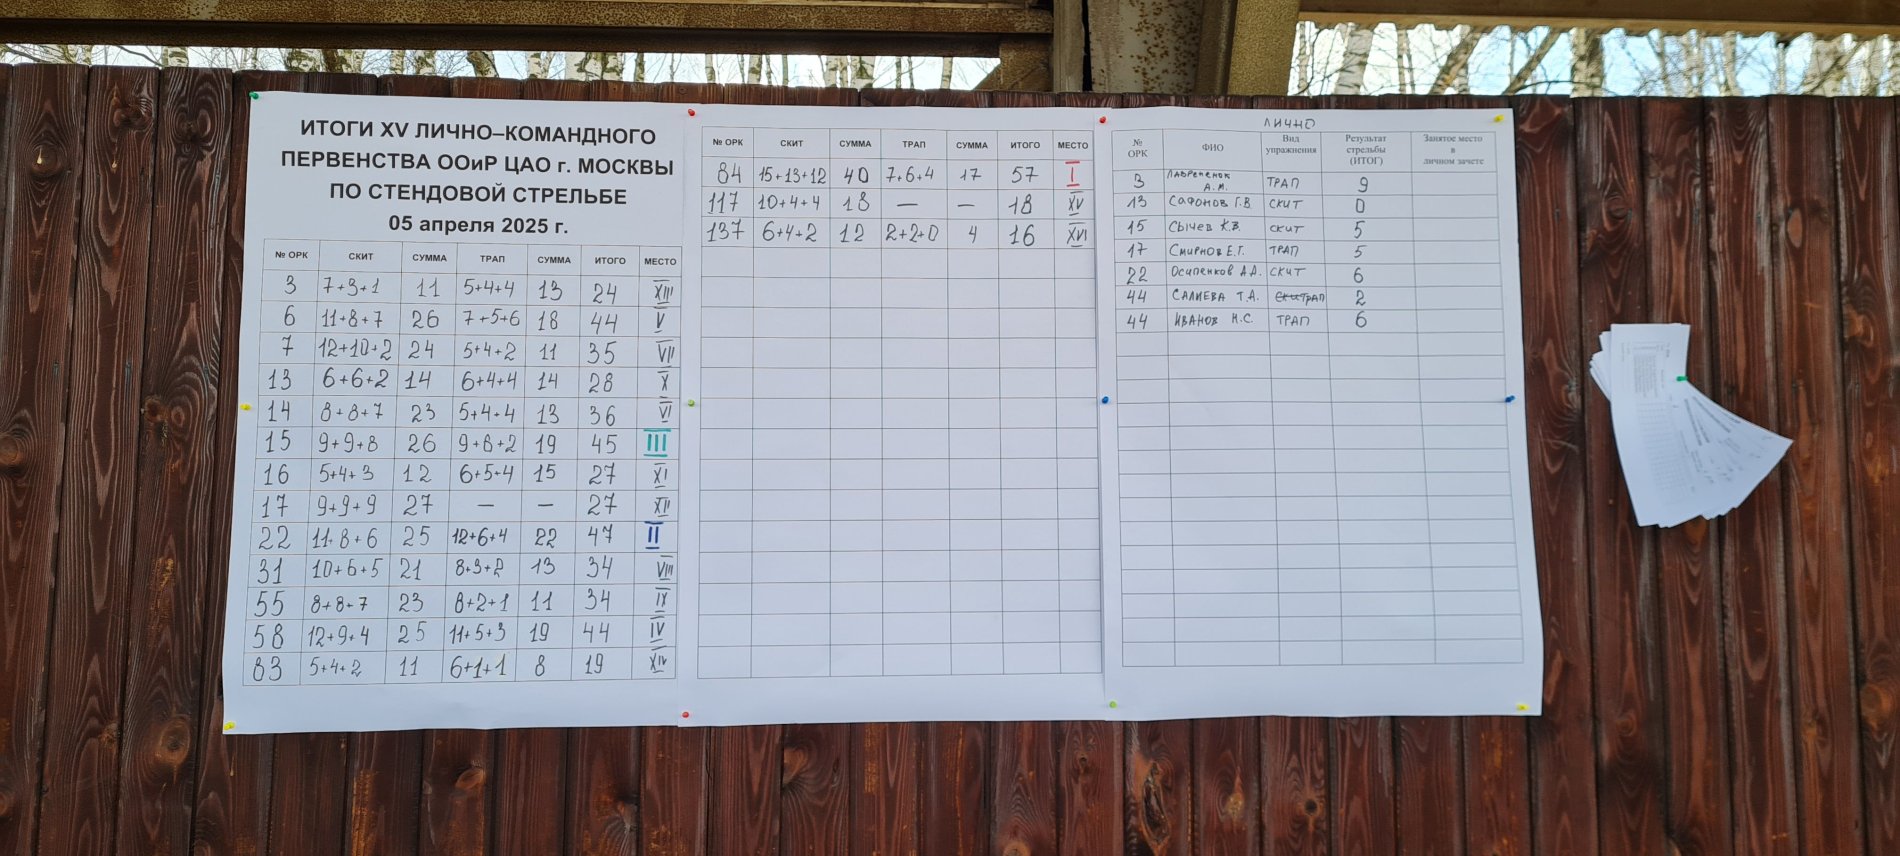 ИТОГИ XV ЛИЧНО–КОМАНДНОГО
ПЕРВЕНСТВА ООиР ЦАО г. МОСКВЫ
ПО СТЕНДОВОЙ СТРЕЛЬБЕ
05 апреля 2025 г.
№ ОРК СКИТ СУММА ТРАП СУММА ИТОГО МЕСТО
3 7+3+1 11 5+4+4 13 24 XIII
6 11+8+7 26 7+5+6 18 44 V
7 12+10+2 24 5+4+2 11 35 VII
13 6+6+2 14 6+4+4 14 28 X
14 8+8+7 23 5+4+4 13 36 VI
15 9+9+8 26 9+8+2 19 45 III
16 5+4+3 12 6+5+4 15 27 XI
17 9+9+9 27 — — 27 XII
22 11+8+6 25 12+6+4 22 47 II
31 10+6+5 21 8+3+2 13 34 VIII
55 8+8+7 23 8+2+1 11 34 IX
58 12+9+4 25 11+5+3 19 44 IV
83 5+4+2 11 6+1+1 8 19 XIV
№ ОРК СКИТ СУММА ТРАП СУММА ИТОГО МЕСТО
84 15+13+12 40 7+6+4 17 57 I
117 10+4+4 18 — — 18 XV
137 6+4+2 12 2+2+0 4 16 XVI
ЛИЧНО
№ ОРК ФИО Вид упражнения Результат стрельбы (ИТОГ) Занятое место в личном зачете
3 А.М. ТРАП 9
13 САФОНОВ Г.В. СКИТ 0
15 СЫЧЕВ К.В. СКИТ 5
17 СМИРНОВ Е.Г. ТРАП 5
22 ОСИПЕНКОВ А.А. СКИТ 6
44 САЛИЕВА Т.А. ТРАП 2
44 ИВАНОВ Н.С. ТРАП 6